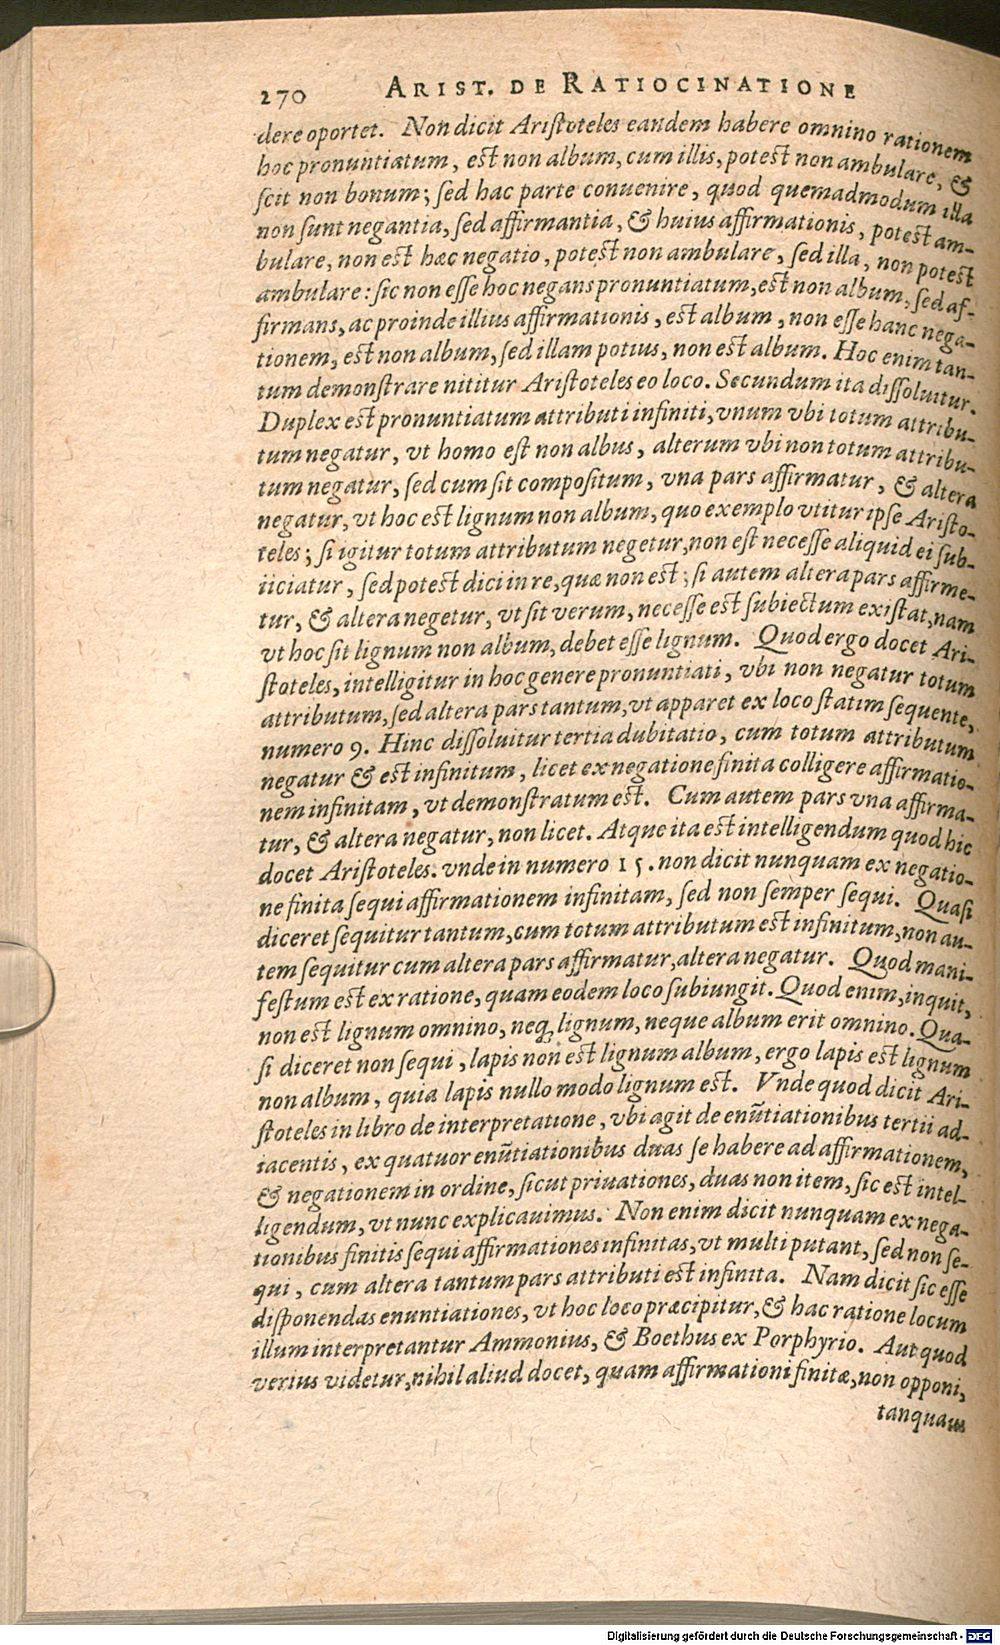 270 ARIST. DE RATIOCINATIONE
dere oportet. Non dicit Ariſtoteles eandem habere omnino rationem
hoc pronuntiatum, eſt non album, cum illis, poteſt non ambulare, &
ſcit non bonum; ſed hac parte conuenire, quod quemadmodum illa
non ſunt negantia, ſed affirmantia, & huius affirmationis, poteſt am-
bulare, non eſt hæc negatio, poteſt non ambulare, ſed illa, non poteſt
ambulare: ſic non eſſe hoc negans pronuntiatum, eſt non album, ſed af-
firmans, ac proinde illius affirmationis, eſt album, non eſſe hanc nega-
tionem, eſt non album, ſed illam potius, non eſt album. Hoc enim tan-
tum demonſtrare nititur Ariſtoteles eo loco. Secundum ita diſſoluitur.
Duplex eſt pronuntiatum attributi infiniti, vnum vbi totum attribu-
tum negatur, vt homo eſt non albus, alterum vbi non totum attribu-
tum negatur, ſed cum ſit compoſitum, vna pars affirmatur, & altera
negatur, vt hoc eſt lignum non album, quo exemplo vtitur ipſe Ariſto-
teles; ſi igitur totum attributum negetur, non eſt neceſſe aliquid ei ſub-
iiciatur, ſed poteſt dici in re, quæ non eſt; ſi autem altera pars affirme-
tur, & altera negetur, vt ſit verum, neceſſe eſt ſubiectum exiſtat, nam
vt hoc ſit lignum non album, debet eſſe lignum. Quod ergo docet Ari-
ſtoteles, intelligitur in hoc genere pronuntiati, vbi non negatur totum
attributum, ſed altera pars tantum, vt apparet ex loco ſtatim ſequente,
numero 9. Hinc diſſoluitur tertia dubitatio, cum totum attributum
negatur & eſt infinitum, licet ex negatione finita colligere affirmatio-
nem infinitam, vt demonſtratum eſt. Cum autem pars vna affirma-
tur, & altera negatur, non licet. Atque ita eſt intelligendum quod hic
docet Ariſtoteles. vnde in numero 15. non dicit nunquam ex negatio-
ne finita ſequi affirmationem infinitam, ſed non ſemper ſequi. Quaſi
diceret ſequitur tantum, cum totum attributum eſt infinitum, non au-
tem ſequitur cum altera pars affirmatur, altera negatur. Quod mani-
feſtum eſt ex ratione, quam eodem loco ſubiungit. Quod enim, inquit,
non eſt lignum omnino, neq; lignum, neque album erit omnino. Qua-
ſi diceret non ſequi, lapis non eſt lignum album, ergo lapis eſt lignum
non album, quia lapis nullo modo lignum eſt. Vnde quod dicit Ari-
ſtoteles in libro de interpretatione, vbi agit de enũtiationibus tertii ad-
iacentis, ex quatuor enũtiationibus duas ſe habere ad affirmationem,
& negationem in ordine, ſicut priuationes, duas non item, ſic eſt intel-
ligendum, vt nunc explicauimus. Non enim dicit nunquam ex nega-
tionibus finitis ſequi affirmationes infinitas, vt multi putant, ſed non ſe-
qui, cum altera tantum pars attributi eſt infinita. Nam dicit ſic eſſe
diſponendas enuntiationes, vt hoc loco præcipitur, & hac ratione locum
illum interpretantur Ammonius, & Boethus ex Porphyrio. Aut quod
verius videtur, nihil aliud docet, quam affirmationi finitæ, non opponi,
tanquam
Digitalisierung gefördert durch die Deutsche Forschungsgemeinschaft - DFG